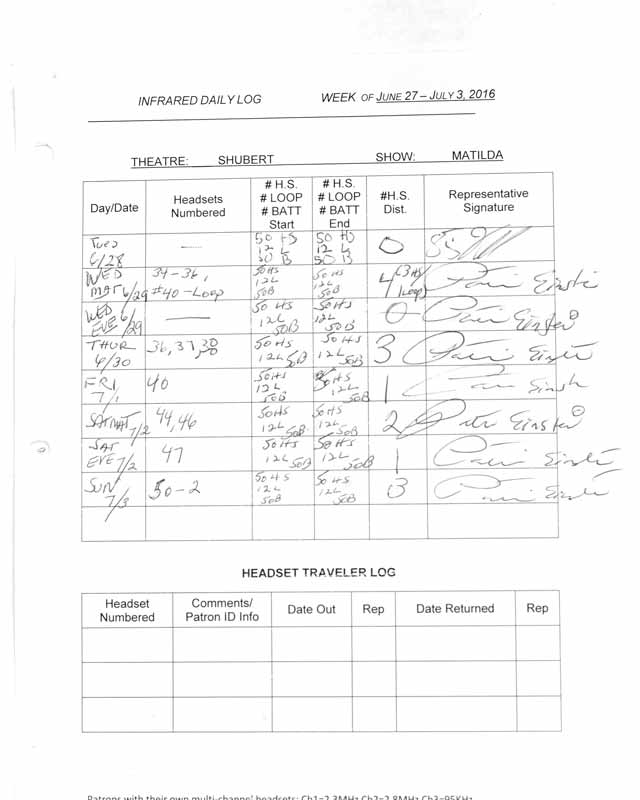 INFRARED DAILY LOG WEEK OF JUNE 27 – JULY 3, 2016
THEATRE: SHUBERT SHOW: MATILDA
Day/Date Headsets Numbered # H.S. # LOOP # BATT Start # H.S. # LOOP # BATT End #H.S. Dist. Representative Signature
TUES 6/28 — 50 HS 12 L 50 B 50 HS 12 L 50 B 0
WED MAT 6/29 34-36, #40-Loop 50 HS 12L 50B 50HS 12L 50B 4 (3 HS 1 Loop) Patti Einstein
WED EVE 6/29 — 50 HS 12L 50B 50HS 12L 50B 0 Patti Einstein
THUR 6/30 36, 37, 38 50 HS 12L 50B 50 HS 12L 50B 3 Patti Einstein
FRI 7/1 40 50HS 12L 50B 50HS 12L 50B 1 Patti Einstein
SAT MAT 7/2 44, 46 50HS 12L 50B 50HS 12L 50B 2 Patti Einstein
SAT EVE 7/2 47 50HS 12L 50B 50HS 12L 50B 1 Patti Einstein
SUN 7/3 50-2 50 HS 12L 50B 50 HS 12L 50B 3 Patti Einstein
HEADSET TRAVELER LOG
Headset Numbered Comments/ Patron ID Info Date Out Rep Date Returned Rep
Patrons with their own multi-channel headsets: Ch1=2.3MHz Ch2=2.8MHz Ch3=95KHz